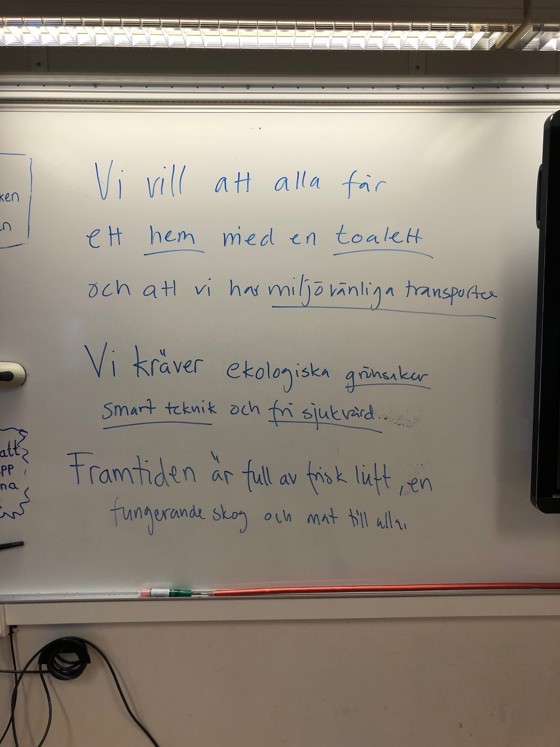 Vi vill att alla får
ett hem med en toalett
och att vi har miljövänliga transporter
Vi kräver ekologiska grönsaker
smart teknik och fri sjukvård
Framtiden är full av frisk luft, en
fungerande skog och mat till alla.
ken
n
att
PP
na